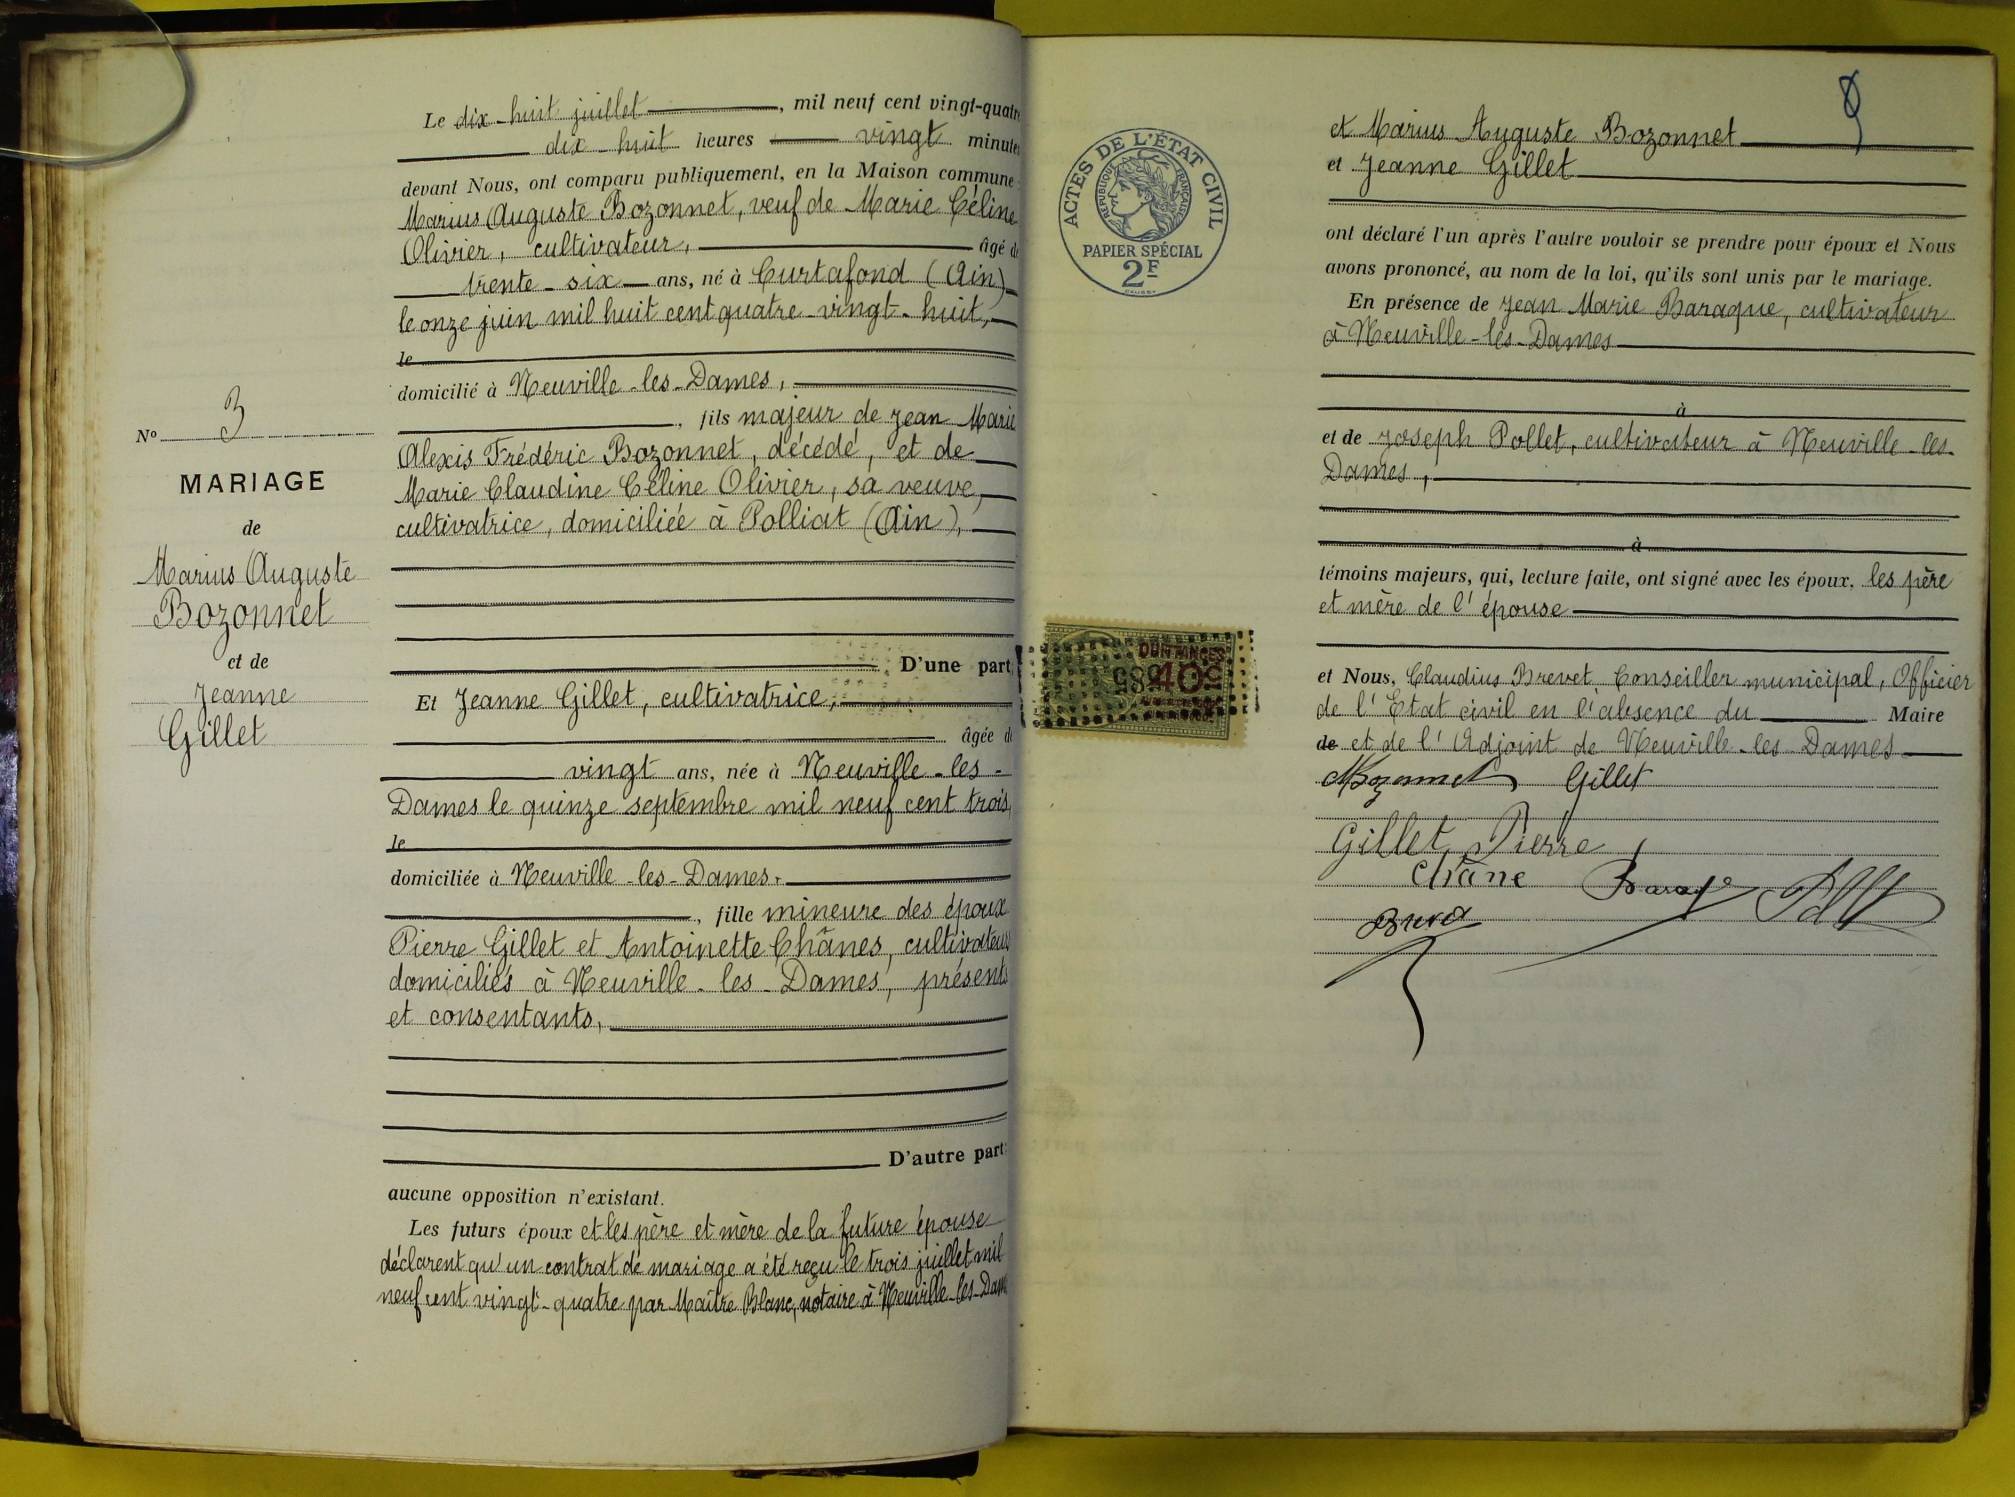 N° 3
MARIAGE
de
Marius Auguste
Bozonnet
et de
Jeanne
Gillet
Le dix-huit juillet, mil neuf cent vingt-quatre
dix-huit heures vingt minutes
devant Nous, ont comparu publiquement, en la Maison commune
Marius Auguste Bozonnet, veuf de Marie Céline
Olivier, cultivateur, âgé de
trente-six ans, né à Curtafond (Ain)
le onze juin mil huit cent quatre-vingt-huit,
le
domicilié à Neuville-les-Dames,
, fils majeur de Jean Marie
Alexis Frédéric Bozonnet, décédé, et de
Marie Claudine Céline Olivier, sa veuve,
cultivatrice, domiciliée à Polliat (Ain),
D'une part
Et Jeanne Gillet, cultivatrice,
âgée de
vingt ans, née à Neuville-les-
Dames le quinze septembre mil neuf cent trois,
le
domiciliée à Neuville-les-Dames.
, fille mineure des époux
Pierre Gillet et Antoinette Chânes, cultivateurs
domiciliés à Neuville-les-Dames, présents
et consentants,
D'autre part:
aucune opposition n'existant.
Les futurs époux et les père et mère de la future épouse
déclarent qu'un contrat de mariage a été reçu le trois juillet mil
neuf cent vingt-quatre par Maître Blanc, notaire à Neuville-les-Dames
ACTES DE L'ÉTAT CIVIL
RÉPUBLIQUE FRANÇAISE
PAPIER SPÉCIAL
2F
40c
et Marius Auguste Bozonnet
et Jeanne Gillet
ont déclaré l'un après l'autre vouloir se prendre pour époux et Nous
avons prononcé, au nom de la loi, qu'ils sont unis par le mariage.
En présence de Jean Marie Baraque, cultivateur
à Neuville-les-Dames
à
et de Joseph Pollet, cultivateur à Neuville-les-
Dames,
à
témoins majeurs, qui, lecture faite, ont signé avec les époux, les père
et mère de l'épouse
et Nous, Claudius Brevet, Conseiller municipal, Officier
de l'Etat civil en l'absence du Maire
de et de l'Adjoint de Neuville-les-Dames
MBozonnet Gillet
Gillet Pierre
Chane Baraque
Brevet